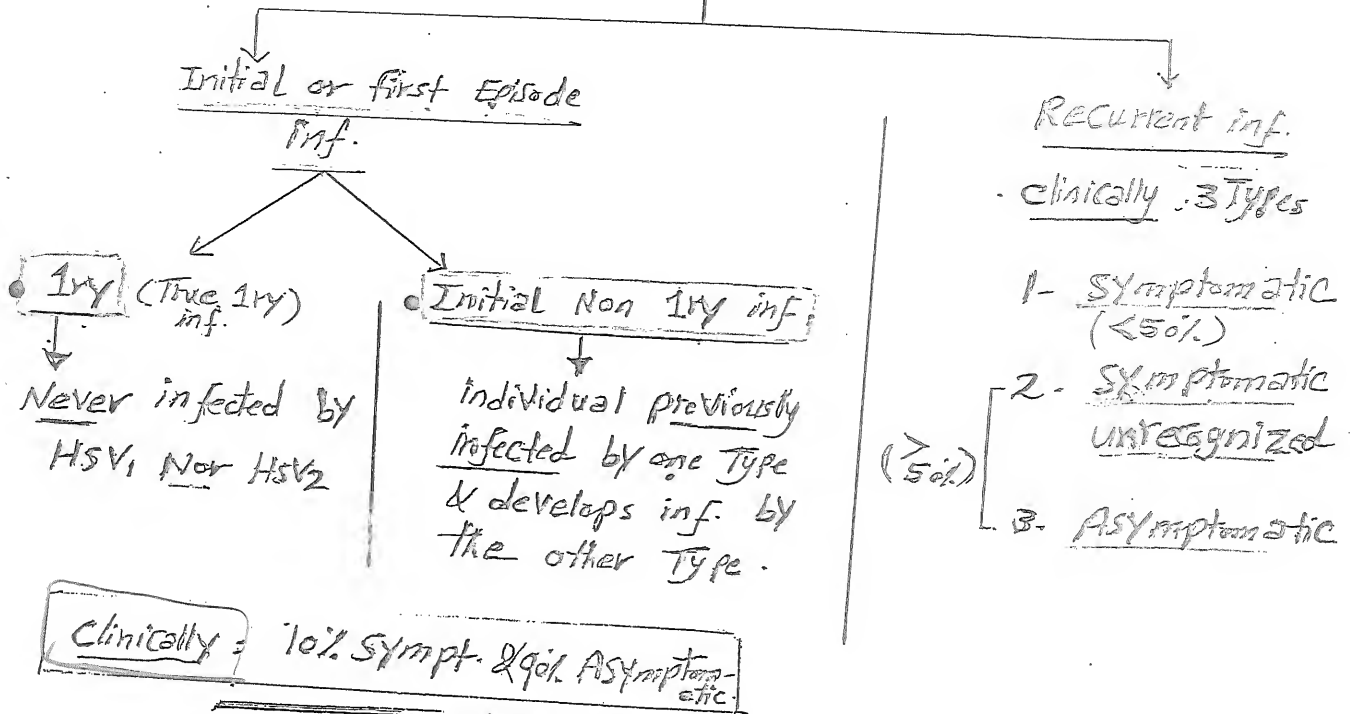 Initial or first Episode
inf.
• 1ry (True 1ry)
inf.
Never infected by
HSV1 Nor HSV2
• Initial Non 1ry inf.
individual previously
infected by one Type
& develops inf. by
the other Type.
Clinically: 10% Sympt. & 90% Asymptom-
atic.
RECurrent inf.
. clinically : 3 Types
1- Symptomatic
(<50%)
2- Symptomatic
unrecognized
(>50%)
3- Asymptomatic